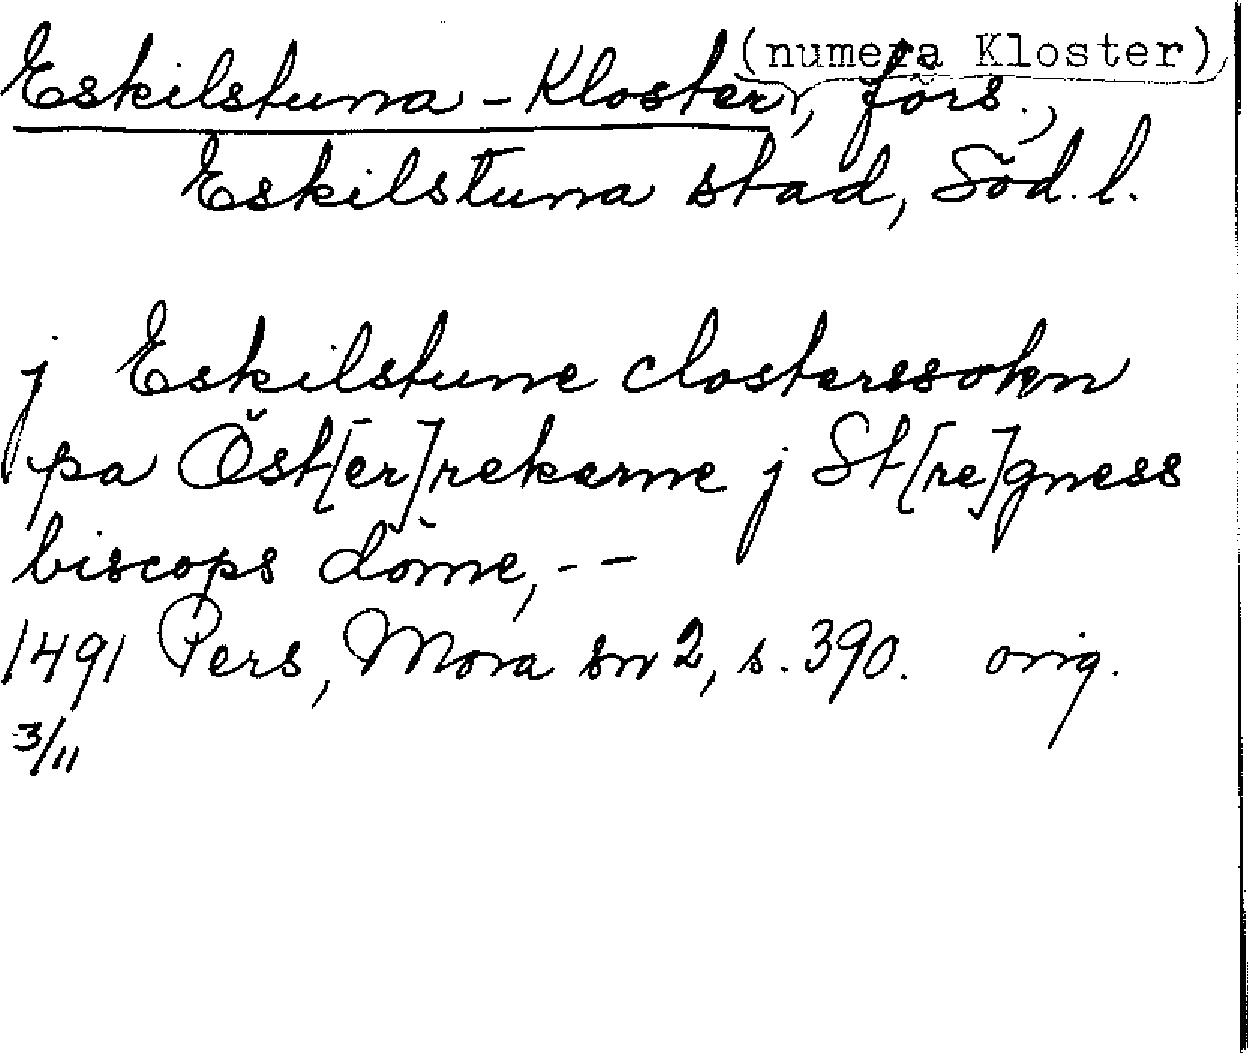 Eskilstuna-Kloster, (numera Kloster), förs.,
Eskilstuna stad, Söd. l.
j Eskilstune closterssokn
pa Öst[er]rekarne j St[re]gness
biscops döme, - -
1491 Pers, Mora sn 2, s. 390. orig.
3/11